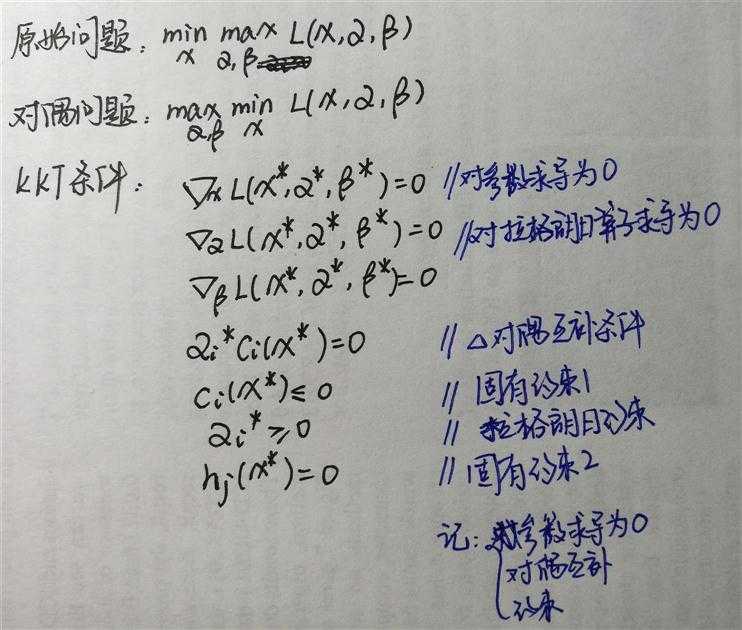 原始问题: min max L(x,α,β)
x α,β
对偶问题: max min L(x,α,β)
α,β x
KKT条件: ∇x L(x*,α*,β*)=0 //对参数求导为0
∇α L(x*,α*,β*)=0 //对拉格朗日算子求导为0
∇β L(x*,α*,β*)=0
αi*ci(x*)=0 //△对偶互补条件
ci(x*)≤0 //固有约束1
αi*≥0 //拉格朗日约束
hj(x*)=0 //固有约束2
记: 对参数求导为0
对偶互补
约束